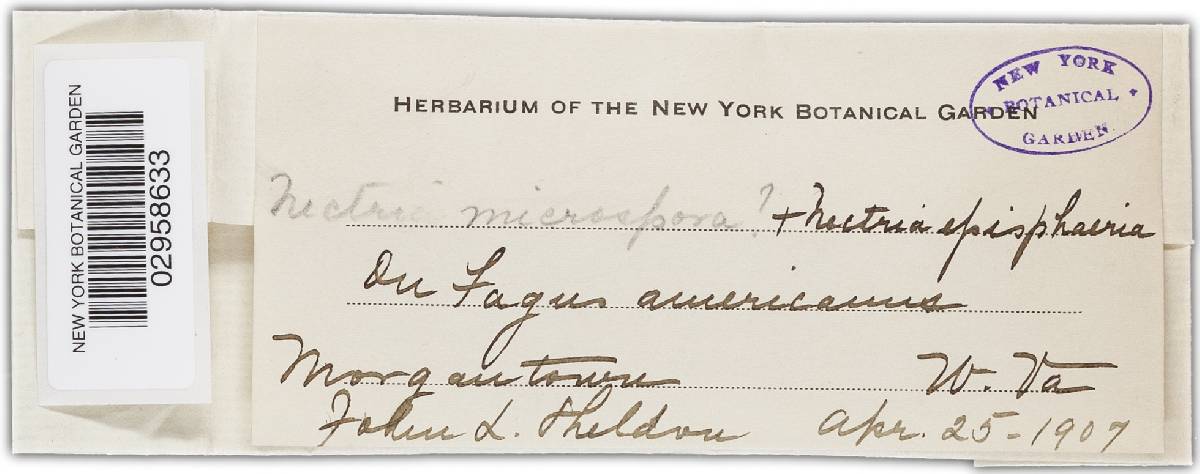 NEW YORK BOTANICAL GARDEN
02958633
HERBARIUM OF THE NEW YORK BOTANICAL GARDEN
NEW YORK
BOTANICAL
GARDEN
Nectria microspora? + Nectria episphaeria
On Fagus americanus
Morgantown W. Va
John L. Sheldon Apr. 25-1907